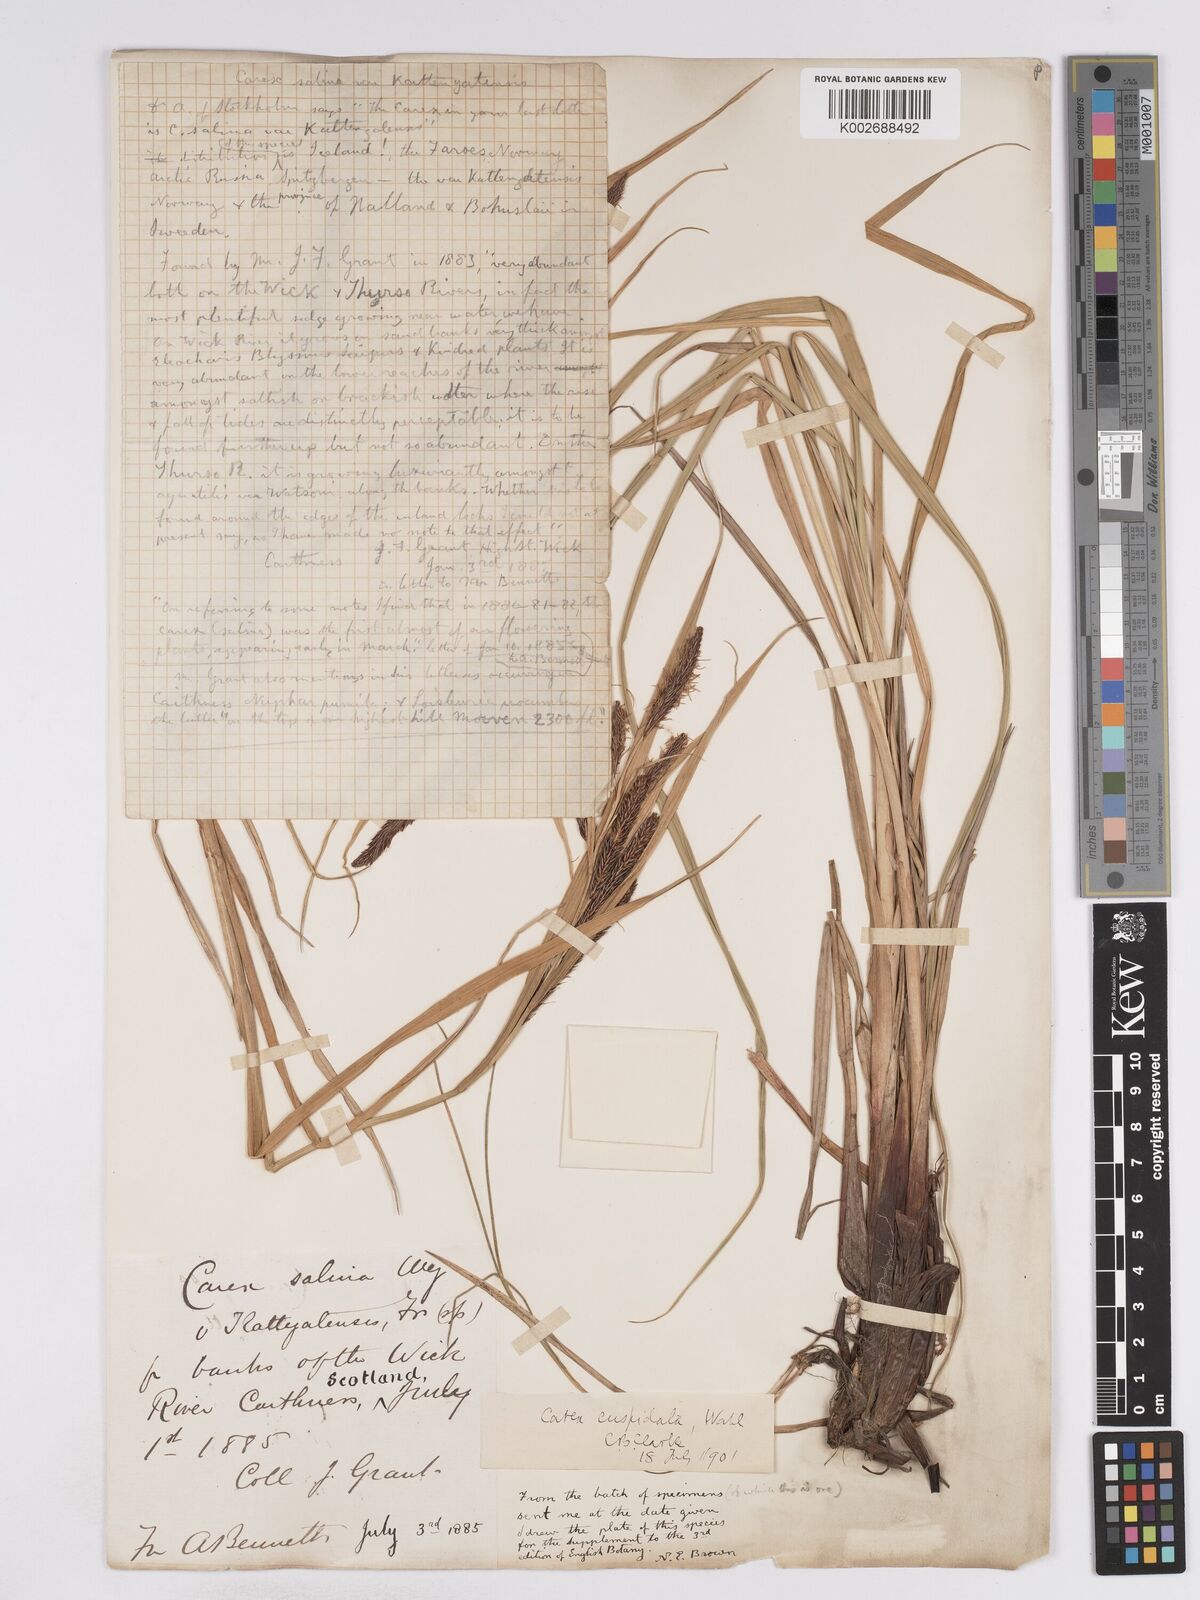 ROYAL BOTANIC GARDENS KEW
K002688492
Carex salina var Kattegatensis
Dr A. of Stockholm says "The Carex in your last letter
is C. salina var Kattegatensis"
of the species
distribution is Iceland!, the Faroes, Norway
Arctic Russia Spitzbergen the var Kattegatensis
Norway & the province of Halland & Bohuslän in
Sweeden.
Found by Mr. J. F. Grant in 1883, "very abundant
both on the Wick & Thurso Rivers, in fact the
most plentiful sedge growing near water we have.
On Wick River it grows on sand banks very thick amongst
Eleocharis Blysmus & Kindred plants It is
very abundant in the lower reaches of the river
amongst saltish or brackish water where the rise
& fall of tides are distinctly perceptible, it is to be
found further up but not so abundant. On the
Thurso R. it is growing luxuriantly amongst C
aquatilis var Watsoni along the banks. Whether it is to be
found around the edges of the inland lochs I cannot at
present say, as I have made no note to that effect"
J. F. Grant High St. Wick
Caithness Jan. 3rd 188
in letter to Mr Bennett
"On referring to some notes I find that in 1880-81-82, the
Carex (salina) was the first almost of our flowering
plants, appearing early in March." letter of Jan 10. 1885
to A. Bennett
Mr. Grant also mentions in his letters as occurring in
Caithness Nuphar pumila, & Loiseleuria procumbens
the latter "on the top of our highest hill Morven 2300 ft."
Carex salina Wg
v Kattegatensis, Fr (sp)
fr banks of the Wick
Scotland,
River Caithness, July
1st 1885
Coll J. Grant.
Fr A Bennett July 3rd 1885
Carex cuspidata, Wahl
C B Clarke
18 July 1901
From the batch of specimens (of which this is one)
sent me at the date given
I drew the plate of this species
for the supplement to the 3rd
edition of English Botany.
N. E. Brown
M001007
Don Williams
Density
inches
Kew
Royal Botanic Gardens
copyright reserved
10 9 8 7 6 5 4 3 2 1 0
cm